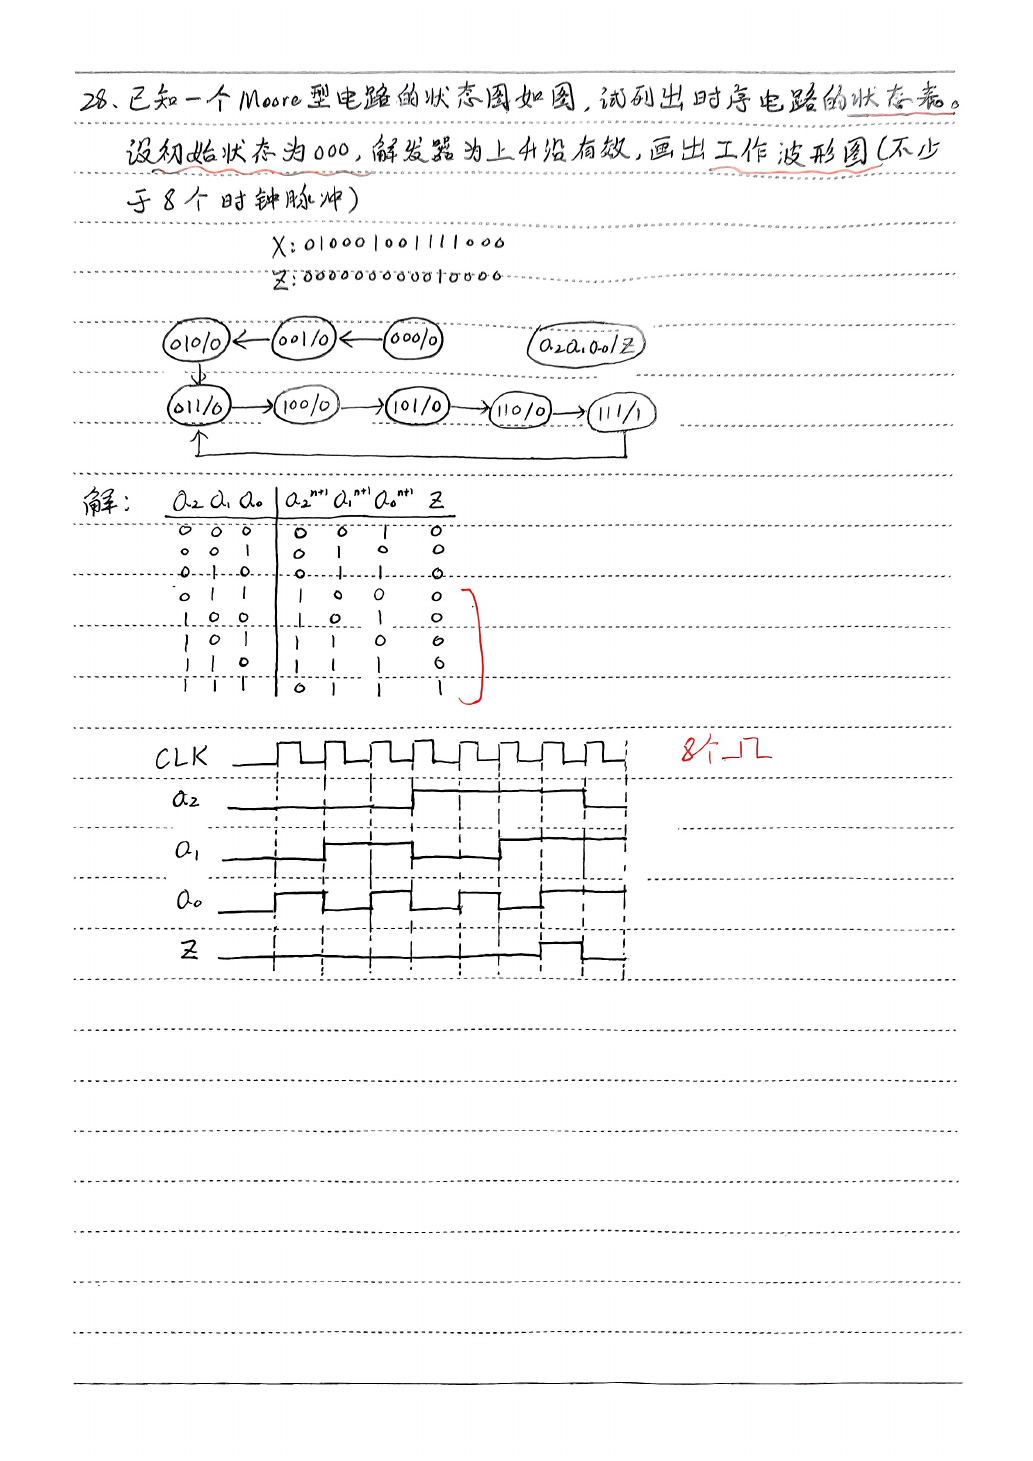 28、已知一个Moore型电路的状态图如图，试列出时序电路的状态表。
设初始状态为000，解发器为上升沿有效，画出工作波形图(不少
于8个时钟脉冲)
X:010001001111000
Z:000000000010000
010/0 001/0 000/0 a2a1a0/Z
011/0 100/0 101/0 110/0 111/1
解: a2 a1 a0 a2ⁿ⁺¹ a1ⁿ⁺¹ a0ⁿ⁺¹ Z
0 0 0 0 0 1 0
0 0 1 0 1 0 0
0 1 0 0 1 1 0
0 1 1 1 0 0 0
1 0 0 1 0 1 0
1 0 1 1 1 0 0
1 1 0 1 1 1 0
1 1 1 0 1 1 1
CLK 8个
a2
a1
a0
Z